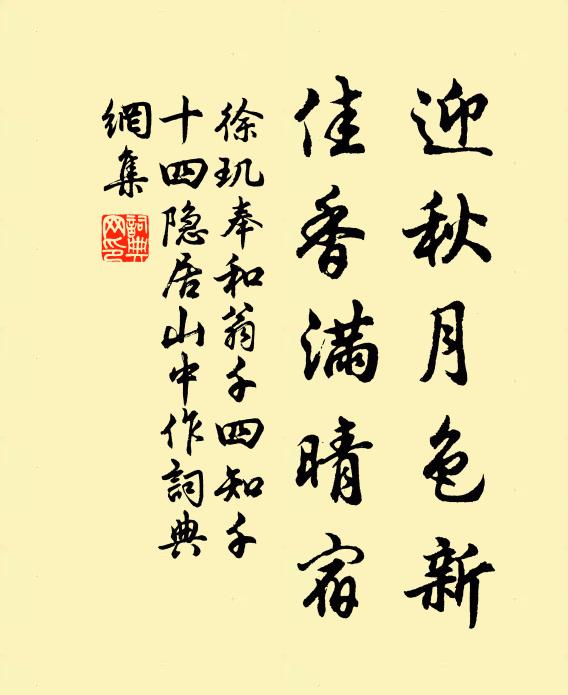 迎秋月色新
佳香满晴宿
徐玑奉和翁千四知千
十四隐居山中作詞典
網集
詞典
网印